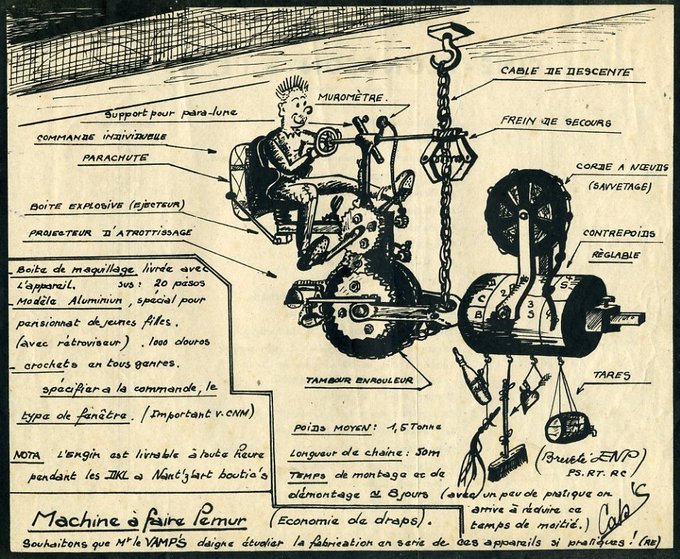 CABLE DE DESCENTE
MUROMÈTRE.
Support pour para-lune
FREIN DE SECOURS
COMMANDE INDIVIDUELLE
PARACHUTE
CORDE A NŒUDS
(SAUVETAGE)
BOITE EXPLOSIVE (EJECTEUR)
PROJECTEUR D'ATROTTISSAGE
CONTREPOIDS
RÈGLABLE
_ Boite de maquillage livrée avec
L'appareil. sus: 20 pesos
_ Modèle Aluminiun, spécial pour
pensionnat de jeunes filles.
(avec rétroviseur). 1000 douros
_ crochets en tous genres.
spécifier a la commande, le
type de fenêtre. (Important V. CNM)
NOTA L'engin est livrable à toute heure
pendant les IIKL à Nant'zlart boutia's
TAMBOUR ENROULEUR
TARES
POIDS MOYEN: 1,5 Tonne
Longueur de chaine: 50m
TEMPS de montage et de
démontage 8 jours (avec un peu de pratique on
arrive à réduire ce
temps de moitié.)
(Breveté ZNP)
PS. RT. RC
Cab's
Machine à faire Pemur (Economie de draps).
Souhaitons que Mr le VAMP'S daigne étudier la fabrication en serie de ces appareils si pratiques! (RE)